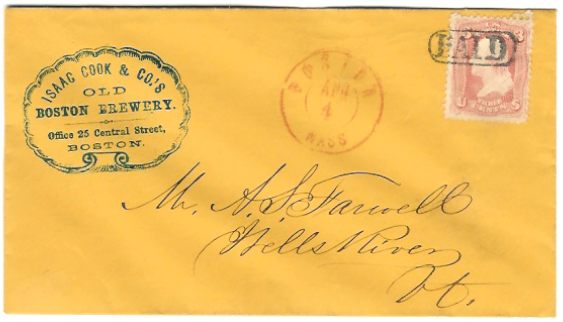 ISAAC COOK & CO.'S
OLD
BOSTON BREWERY.
Office 25 Central Street,
BOSTON.
BOSTON
APR
4
MASS
PAID
3
U THREE CENTS S
Mr. A. S. Farwell
Wells River
Vt.